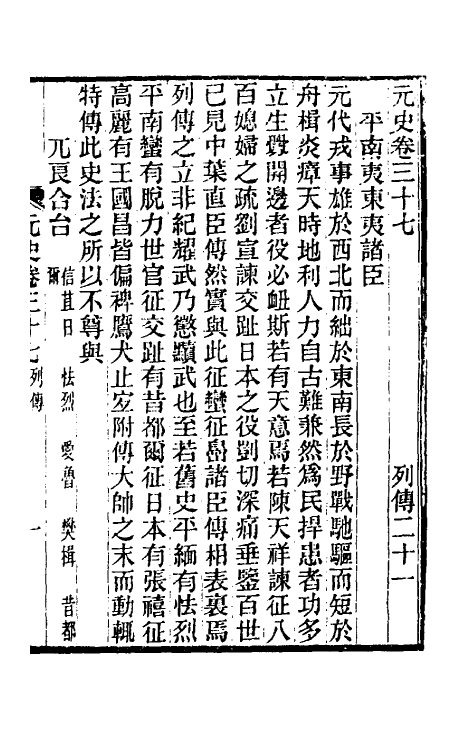 元史卷三十七　列傳二十一
平南夷東夷諸臣
元代戎事雄於西北而絀於東南長於野戰馳驅而短於
舟楫炎瘴天時地利人力自古難兼然爲民捍患者功多
立生釁開邊者役必衄斯若有天意焉若陳天祥諫征八
百媳婦之疏劉宣諫交趾日本之役剴切深痛垂鑒百世
已見中葉直臣傳然實與此征蠻征島諸臣傳相表裏焉
列傳之立非紀耀武乃懲黷武也至若舊史平緬有怯烈
平南蠻有脫力世官征交趾有昔都爾征日本有張禧征
高麗有王國昌皆偏裨鷹犬止宜附傳大帥之末而動輒
特傳此史法之所以不尊與
兀良合台　信苴日　怯烈　愛魯　樊楫　昔都
爾
元史卷三十七　列傳　一